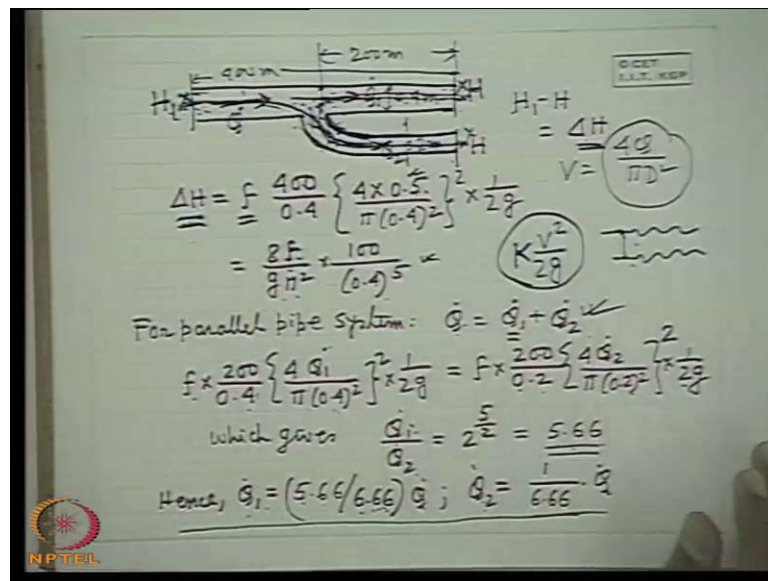 200m
400m
© CET
I.I.T. KGP
H₁
Q̇
H
H
H₁-H
= ΔH
V = 4Q/πD²
ΔH = f 400/0.4 {4×0.5/π(0.4)²}² × 1/2g
= 8f/gπ² × 100/(0.4)⁵
K V²/2g
For parallel pipe system: Q̇ = Q̇₁ + Q̇₂
f × 200/0.4 {4Q̇₁/π(0.4)²}² × 1/2g = f × 200/0.2 {4Q̇₂/π(0.2)²}² × 1/2g
which gives Q̇₁/Q̇₂ = 2^(5/2) = 5.66
Hence, Q̇₁ = (5.66/6.66) Q̇ ; Q̇₂ = 1/6.66 . Q̇
NPTEL